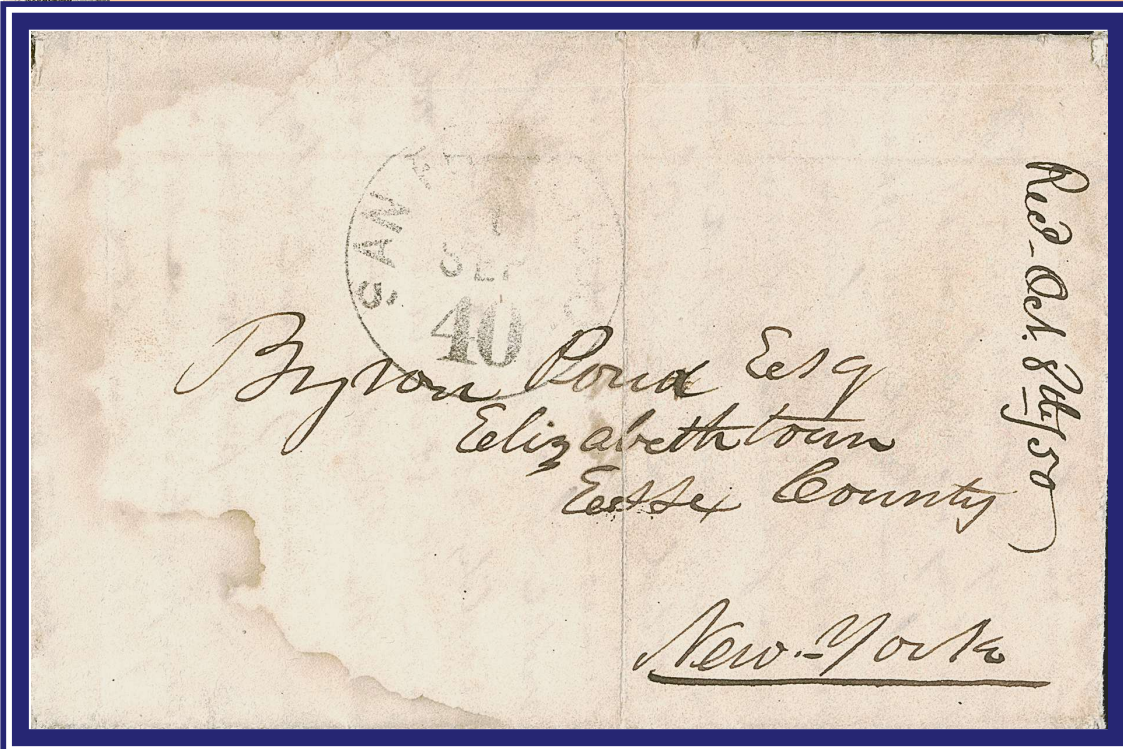 SAN
SEP
40
Byron Pond Esq
Elizabethtown
Essex County
New-York
Recd - Oct. 8th/50